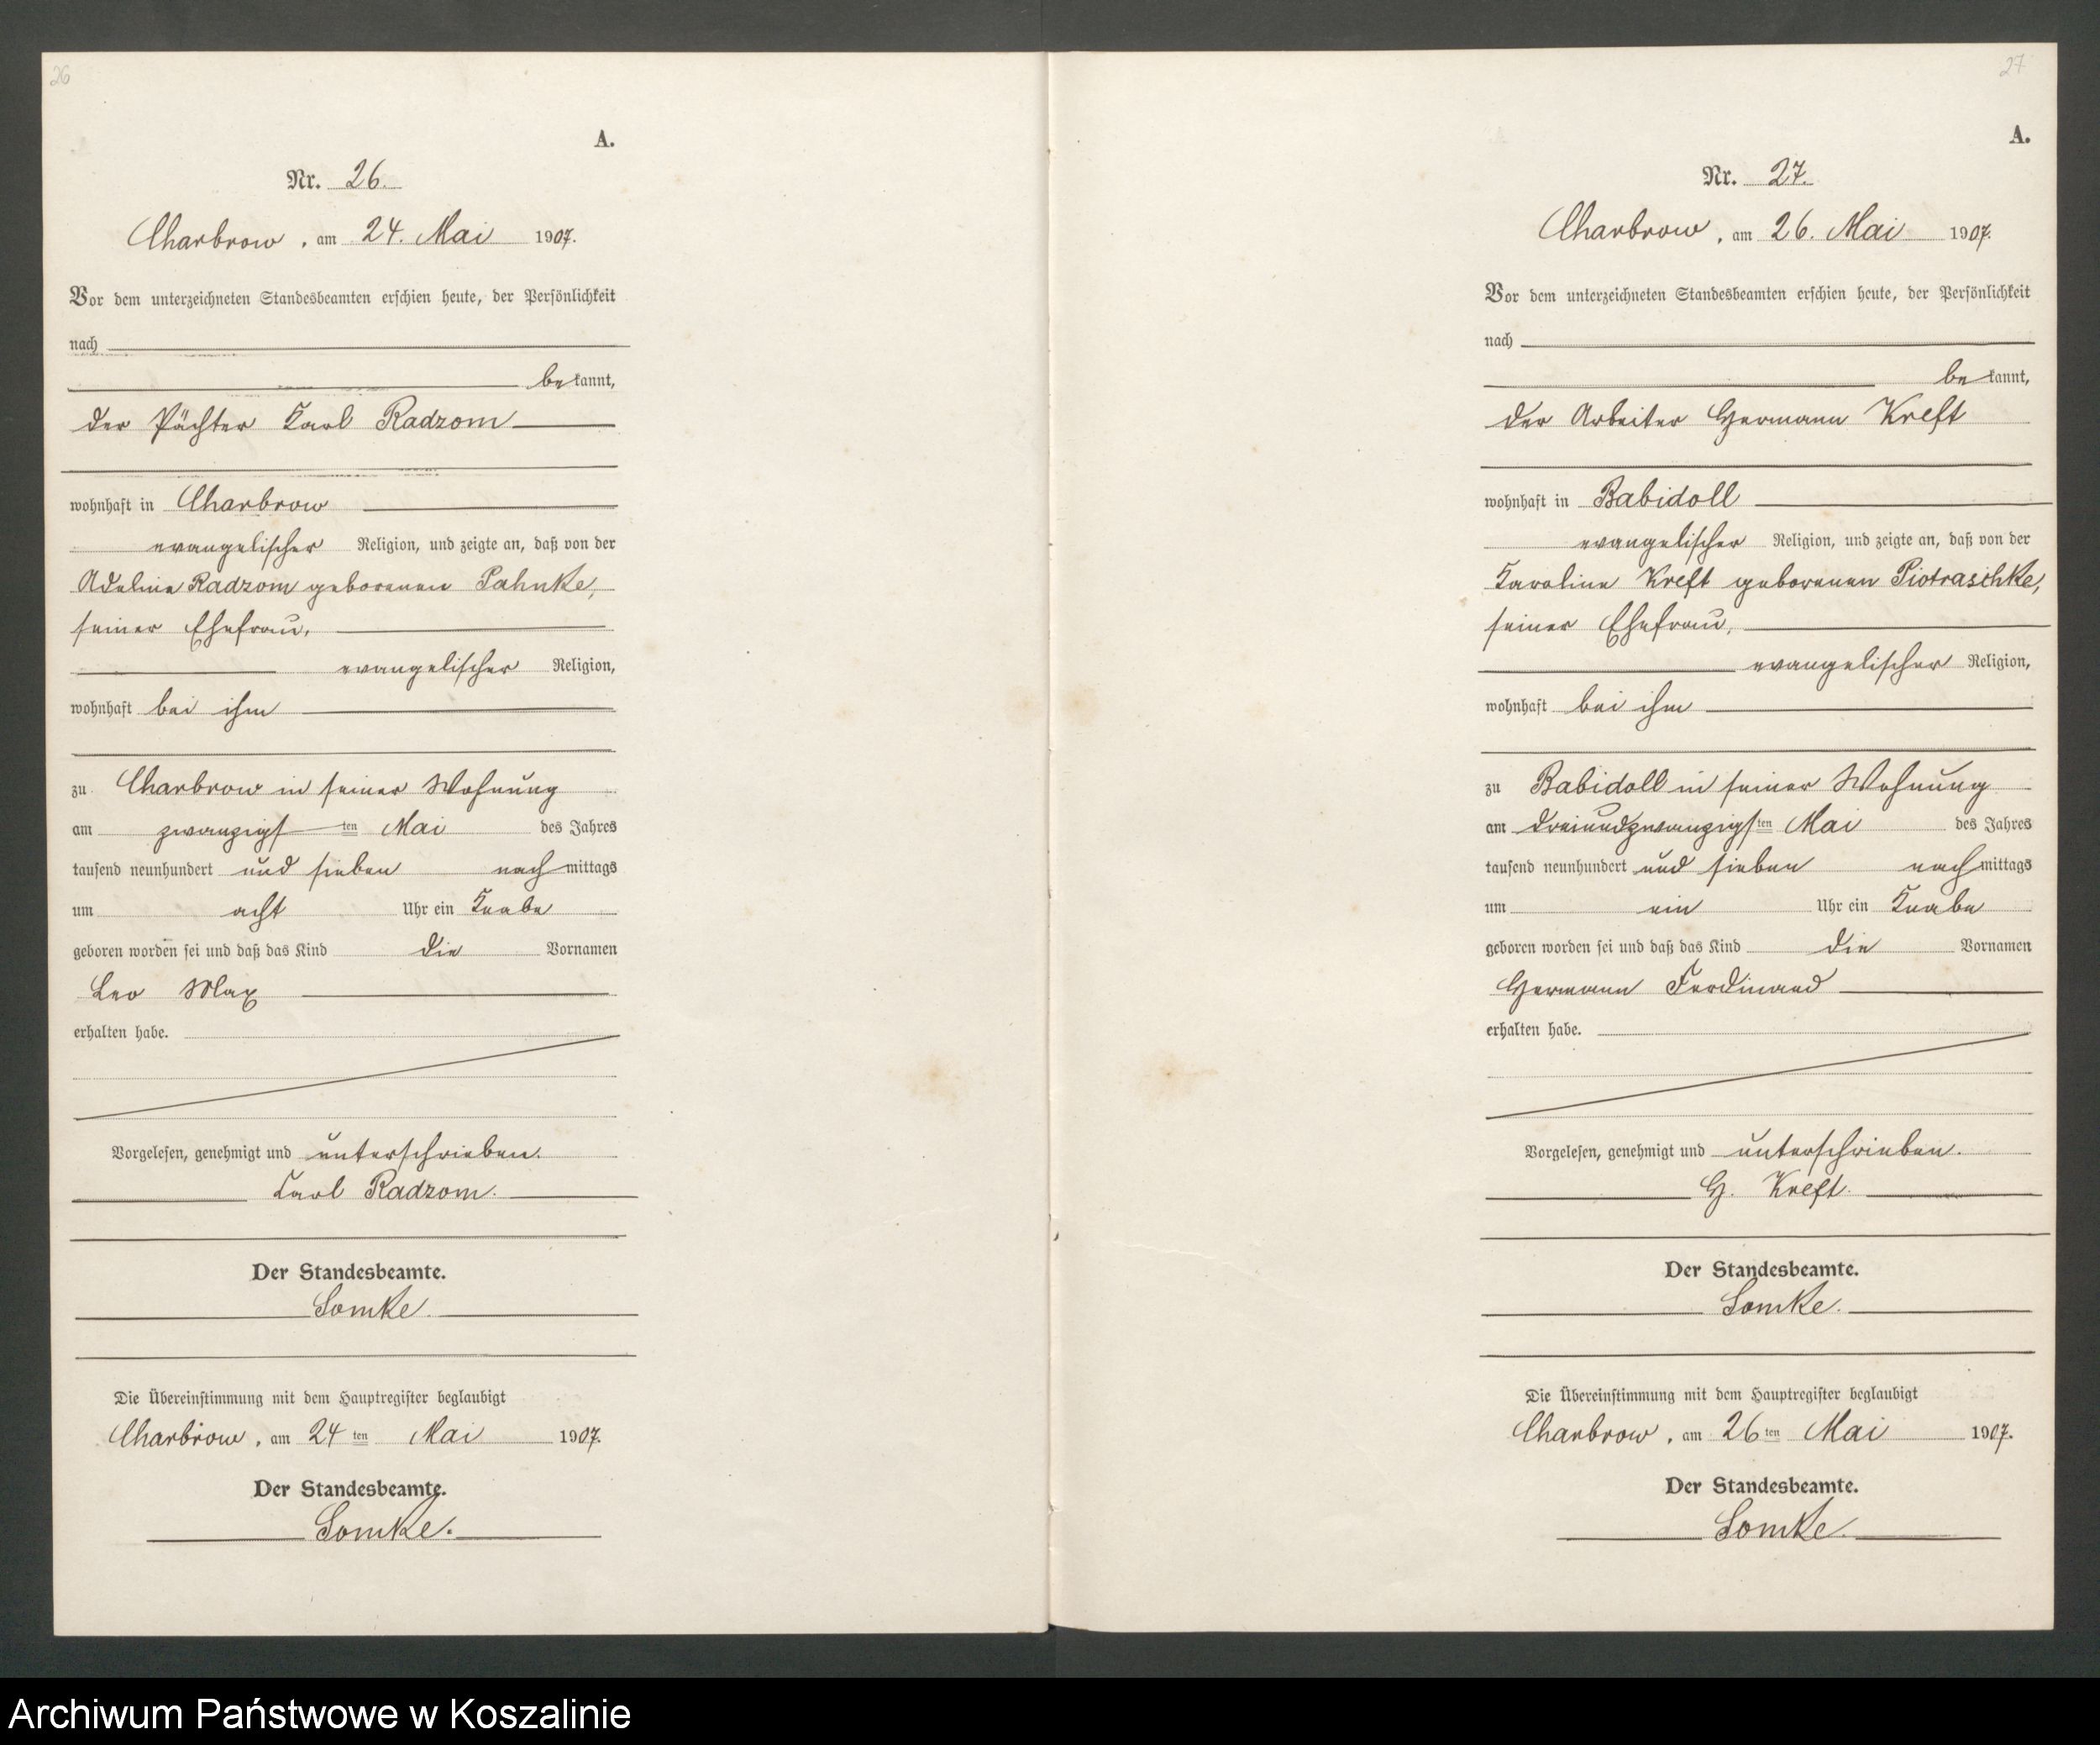 26
A.
Nr. 26.
Charbrow, am 24. Mai 1907.
Vor dem unterzeichneten Standesbeamten erschien heute, der Persönlichkeit
nach
bekannt,
der Pächter Karl Radzom
wohnhaft in Charbrow
evangelischer Religion, und zeigte an, daß von der
Adeline Radzom geborenen Pahnke,
seiner Ehefrau,
evangelischer Religion,
wohnhaft bei ihm
zu Charbrow in seiner Wohnung
am zwanzigsten Mai des Jahres
tausend neunhundert und sieben nachmittags
um acht Uhr ein Knabe
geboren worden sei und daß das Kind die Vornamen
Leo Max
erhalten habe.
Vorgelesen, genehmigt und unterschrieben.
Karl Radzom.
Der Standesbeamte.
Lomke.
Die Übereinstimmung mit dem Hauptregister beglaubigt
Charbrow, am 24ten Mai 1907.
Der Standesbeamte.
Lomke.
27
A.
Nr. 27.
Charbrow, am 26. Mai 1907.
Vor dem unterzeichneten Standesbeamten erschien heute, der Persönlichkeit
nach
bekannt,
der Arbeiter Hermann Kreft
wohnhaft in Babidoll
evangelischer Religion, und zeigte an, daß von der
Karoline Kreft geborenen Piotraschke,
seiner Ehefrau,
evangelischer Religion,
wohnhaft bei ihm
zu Babidoll in seiner Wohnung
am dreiundzwanzigsten Mai des Jahres
tausend neunhundert und sieben nachmittags
um ein Uhr ein Knabe
geboren worden sei und daß das Kind die Vornamen
Hermann Ferdinand
erhalten habe.
Vorgelesen, genehmigt und unterschrieben.
H. Kreft.
Der Standesbeamte.
Lomke.
Die Übereinstimmung mit dem Hauptregister beglaubigt
Charbrow, am 26ten Mai 1907.
Der Standesbeamte.
Lomke.
Archiwum Państwowe w Koszalinie